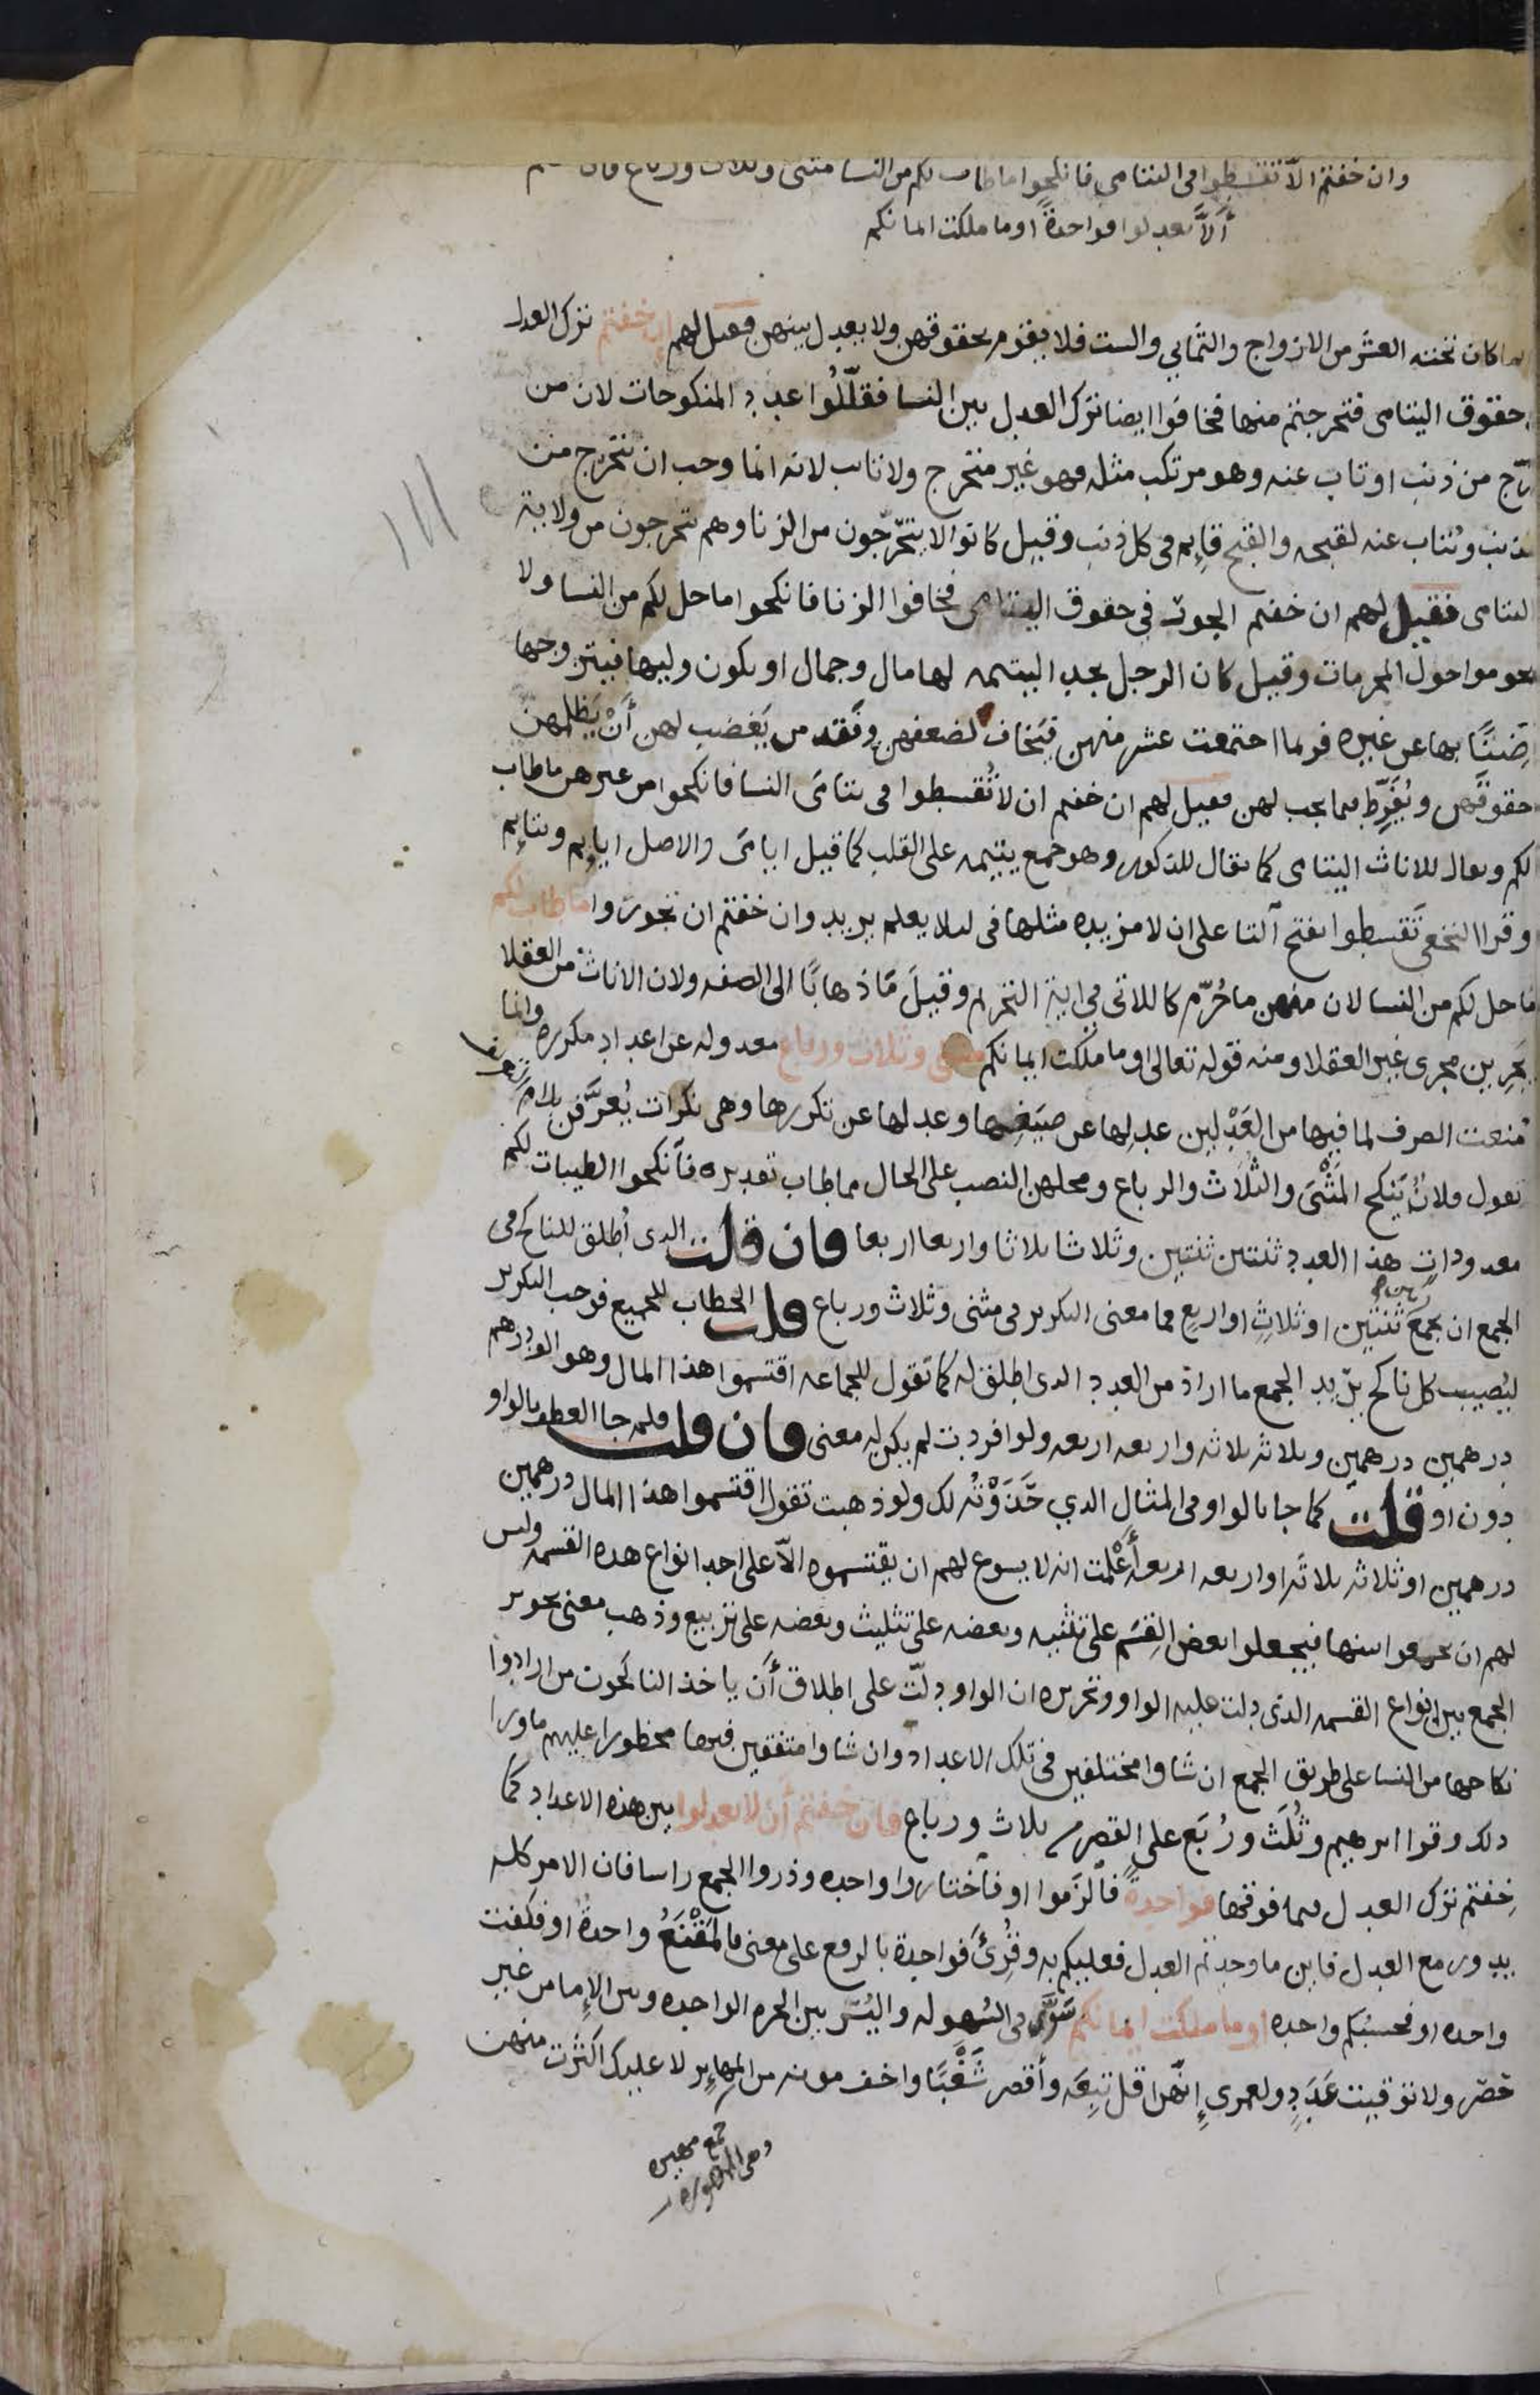 وان خفتم الا تقسطوا في اليتامى فانكحوا ما طاب لكم من النسا مثنى وثلاث ورباع فان
ألّا تعدلوا فواحدةً او ما ملكت ايمانكم
كان تحته العشر من الازواج والثماني والست فلا يقوم بحقوقهن ولا يعدل بينهن فقيل لهم ان خفتم ترك العدل
حقوق اليتامى فتحرجتم منها فخافوا ايضا ترك العدل بين النسا فقلّلُوا عدد المنكوحات لان من
رّج من ذنب او تاب عنه وهو مرتكب مثله فهو غير متحرج ولا تائب لانه انما وجب ان يتحرج من
الذنب ويُتاب عنه لقبحه والقبح قايم في كل ذنب وقيل كانوا لا يتحرّجون من الزنا وهم يتحرجون من ولاية
اليتامى فقيل لهم ان خفتم الجور في حقوق اليتامى فخافوا الزنا فانكحوا ما حل لكم من النسا ولا
تحوموا حول المحرمات وقيل كان الرجل يجد اليتيمه لها مال وجمال او يكون وليها فيتزوجها
ضَنًّا بها عن غيره فربما اجتمعت عشر منهن فيَخاف لضعفهن وفَقد من يَغضب لهن أنْ يَظلمهن
حقوقَهن ويُفَرِّط فيما يجب لهن فقيل لهم ان خفتم ان لا تُقسطوا في يتامَى النسا فانكحوا من غيرهن ما طاب
لكم ويقال للاناث اليتامى كما يقال للذكور وهو جمع يتيمه على القلب كما قيل ايامَى والاصل ايايم ويتايم
وقرا النخعي تَقسطوا بفتح التا على ان لا مزيده مثلها في لئلا يعلم يريد وان خفتم ان تجوروا ما طاب لكم
ما حل لكم من النسا لان منهن ما حُرّم كاللاتي في اية التحريم وقيلَ مَا ذهابًا الى الصفه ولان الاناث من العقلا
يجرين مجرى غير العقلا ومنه قوله تعالى او ما ملكت ايمانكم مثنى وثلاث ورباع معدوله عن اعداد مكرره وانما
مُنعت الصرف لما فيها من العَدْلين عدلها عن صيَغِها وعدلها عن تكررها وهي نكرات يُعرَّفن بلام التعريف
تقول فلانٌ يَنكح المَثْنَى والثُّلَاث والرباع ومحلهن النصب على الحال مما طاب تقديره فانكحوا الطيبات لكم
معدودات هذا العدد ثنتين ثنتين وثلاثا ثلاثا واربعا اربعا فان قلت الذي أُطلق للناكح في
الجمع ان يجمع ثنتين او ثلاثٍ او اربعٍ فما معنى التكرير في مثنى وثلاث ورباع قلت الخطاب للجميع فوجب التكرير
ليُصيب كل ناكح يريد الجمع ما اراد من العدد الذي اطلق له كما تقول للجماعه اقتسموا هذا المال وهو الف درهم
درهمين درهمين وثلاثه ثلاثه واربعه اربعه ولو افردت لم يكن له معنى فان قلت فلم جا العطف بالواو
دون او قلت كما جا بالواو في المثال الذي حَذَوْتُه لك ولو ذهبت تقول اقتسموا هذا المال درهمين
درهمين او ثلاثه ثلاثه او اربعه اربعه أعْلمت انه لا يسوع لهم ان يقتسموه الّا على احد انواع هذه القسمه وليس
لهم ان يجمعوا بينها فيجعلوا بعض القِسَم على تثنيه وبعضه على تثليث وبعضه على تربيع وذهب معنى تجوير
الجمع بين انواع القسمه الذي دلت عليه الواو وتحريره ان الواو دلّت على اطلاق أن ياخذ الناكحون من ارادوا
نكاحها من النسا على طريق الجمع ان شاوا مختلفين في تلك الاعداد وان شاوا متفقين فيها محظورا عليهم ما ورا
ذلك وقرا ابرهيم وثُلَث ورُبَع على القصر من ثلاث ورباع فان خفتم أن لا تعدلوا بين هذه الاعداد كما
خِفتم ترك العدل فيما فوقها فواحدةً فالزَموا او فاختاروا واحده وذروا الجمع راسا فان الامر كله
يدور مع العدل فاين ما وجدتم العدل فعليكم به وقُرئَ فواحدة بالرفع على معنى فالمَقْنَعُ واحدةٌ او فكفت
واحده او فحسبُكم واحده او ما ملكت ايمانكم سَوَّى في السُهوله واليُسر بين الحره الواحده وبين الإما من غير
حَصر ولا توقيت عَدَدٍ ولعمري إنهن اقل تبِعَه وأقصر شَغْبًا واخف مونه من المهاير لا عليك اكثرت منهن
جمع مهيره
وهي